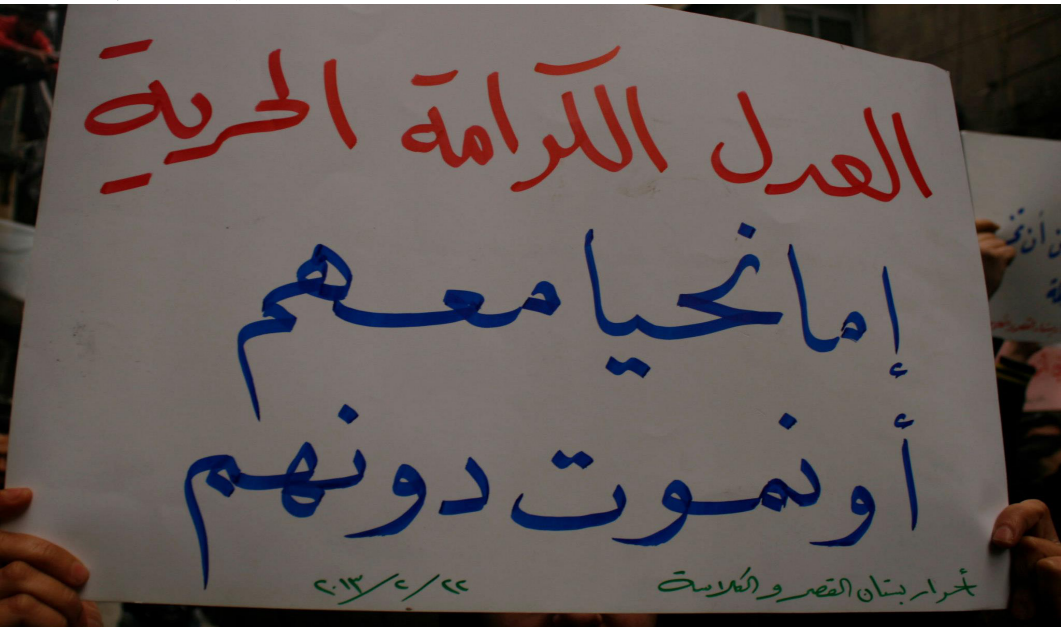 العدل الكرامة الحرية
إما نحيا معهم
أو نموت دونهم
أحرار بستان القصر و الكلاسة ٢٢/٢/٢٠١٣
أن